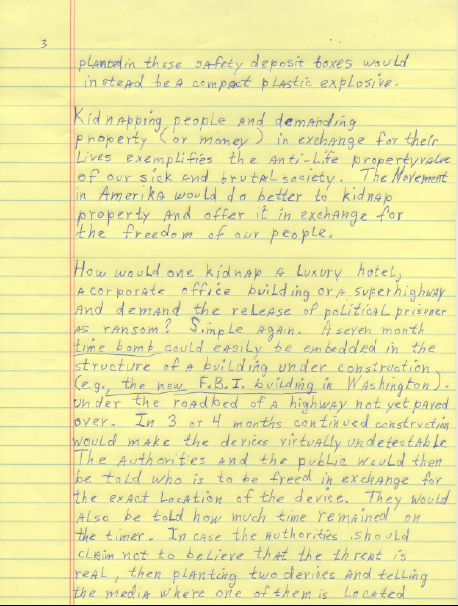 3
planted in these safety deposit boxes would
instead be a compact plastic explosive.
Kidnapping people and demanding
property (or money) in exchange for their
lives exemplifies the anti-life property value
of our sick and brutal society. The Movement
in Amerika would do better to kidnap
property and offer it in exchange for
the freedom of our people.
How would one kidnap a luxury hotel,
a corporate office building or a superhighway
and demand the release of political prisoner
as ransom? Simple again. A seven month
time bomb could easily be embedded in the
structure of a building under construction
(e.g., the new F.B.I. building in Washington).
under the roadbed of a highway not yet paved
over. In 3 or 4 months continued construction
would make the devices virtually undetectable
The authorities and the public would then
be told who is to be freed in exchange for
the exact location of the device. They would
also be told how much time remained on
the timer. In case the authorities should
claim not to believe that the threat is
real, then planting two devices and telling
the media where one of them is located